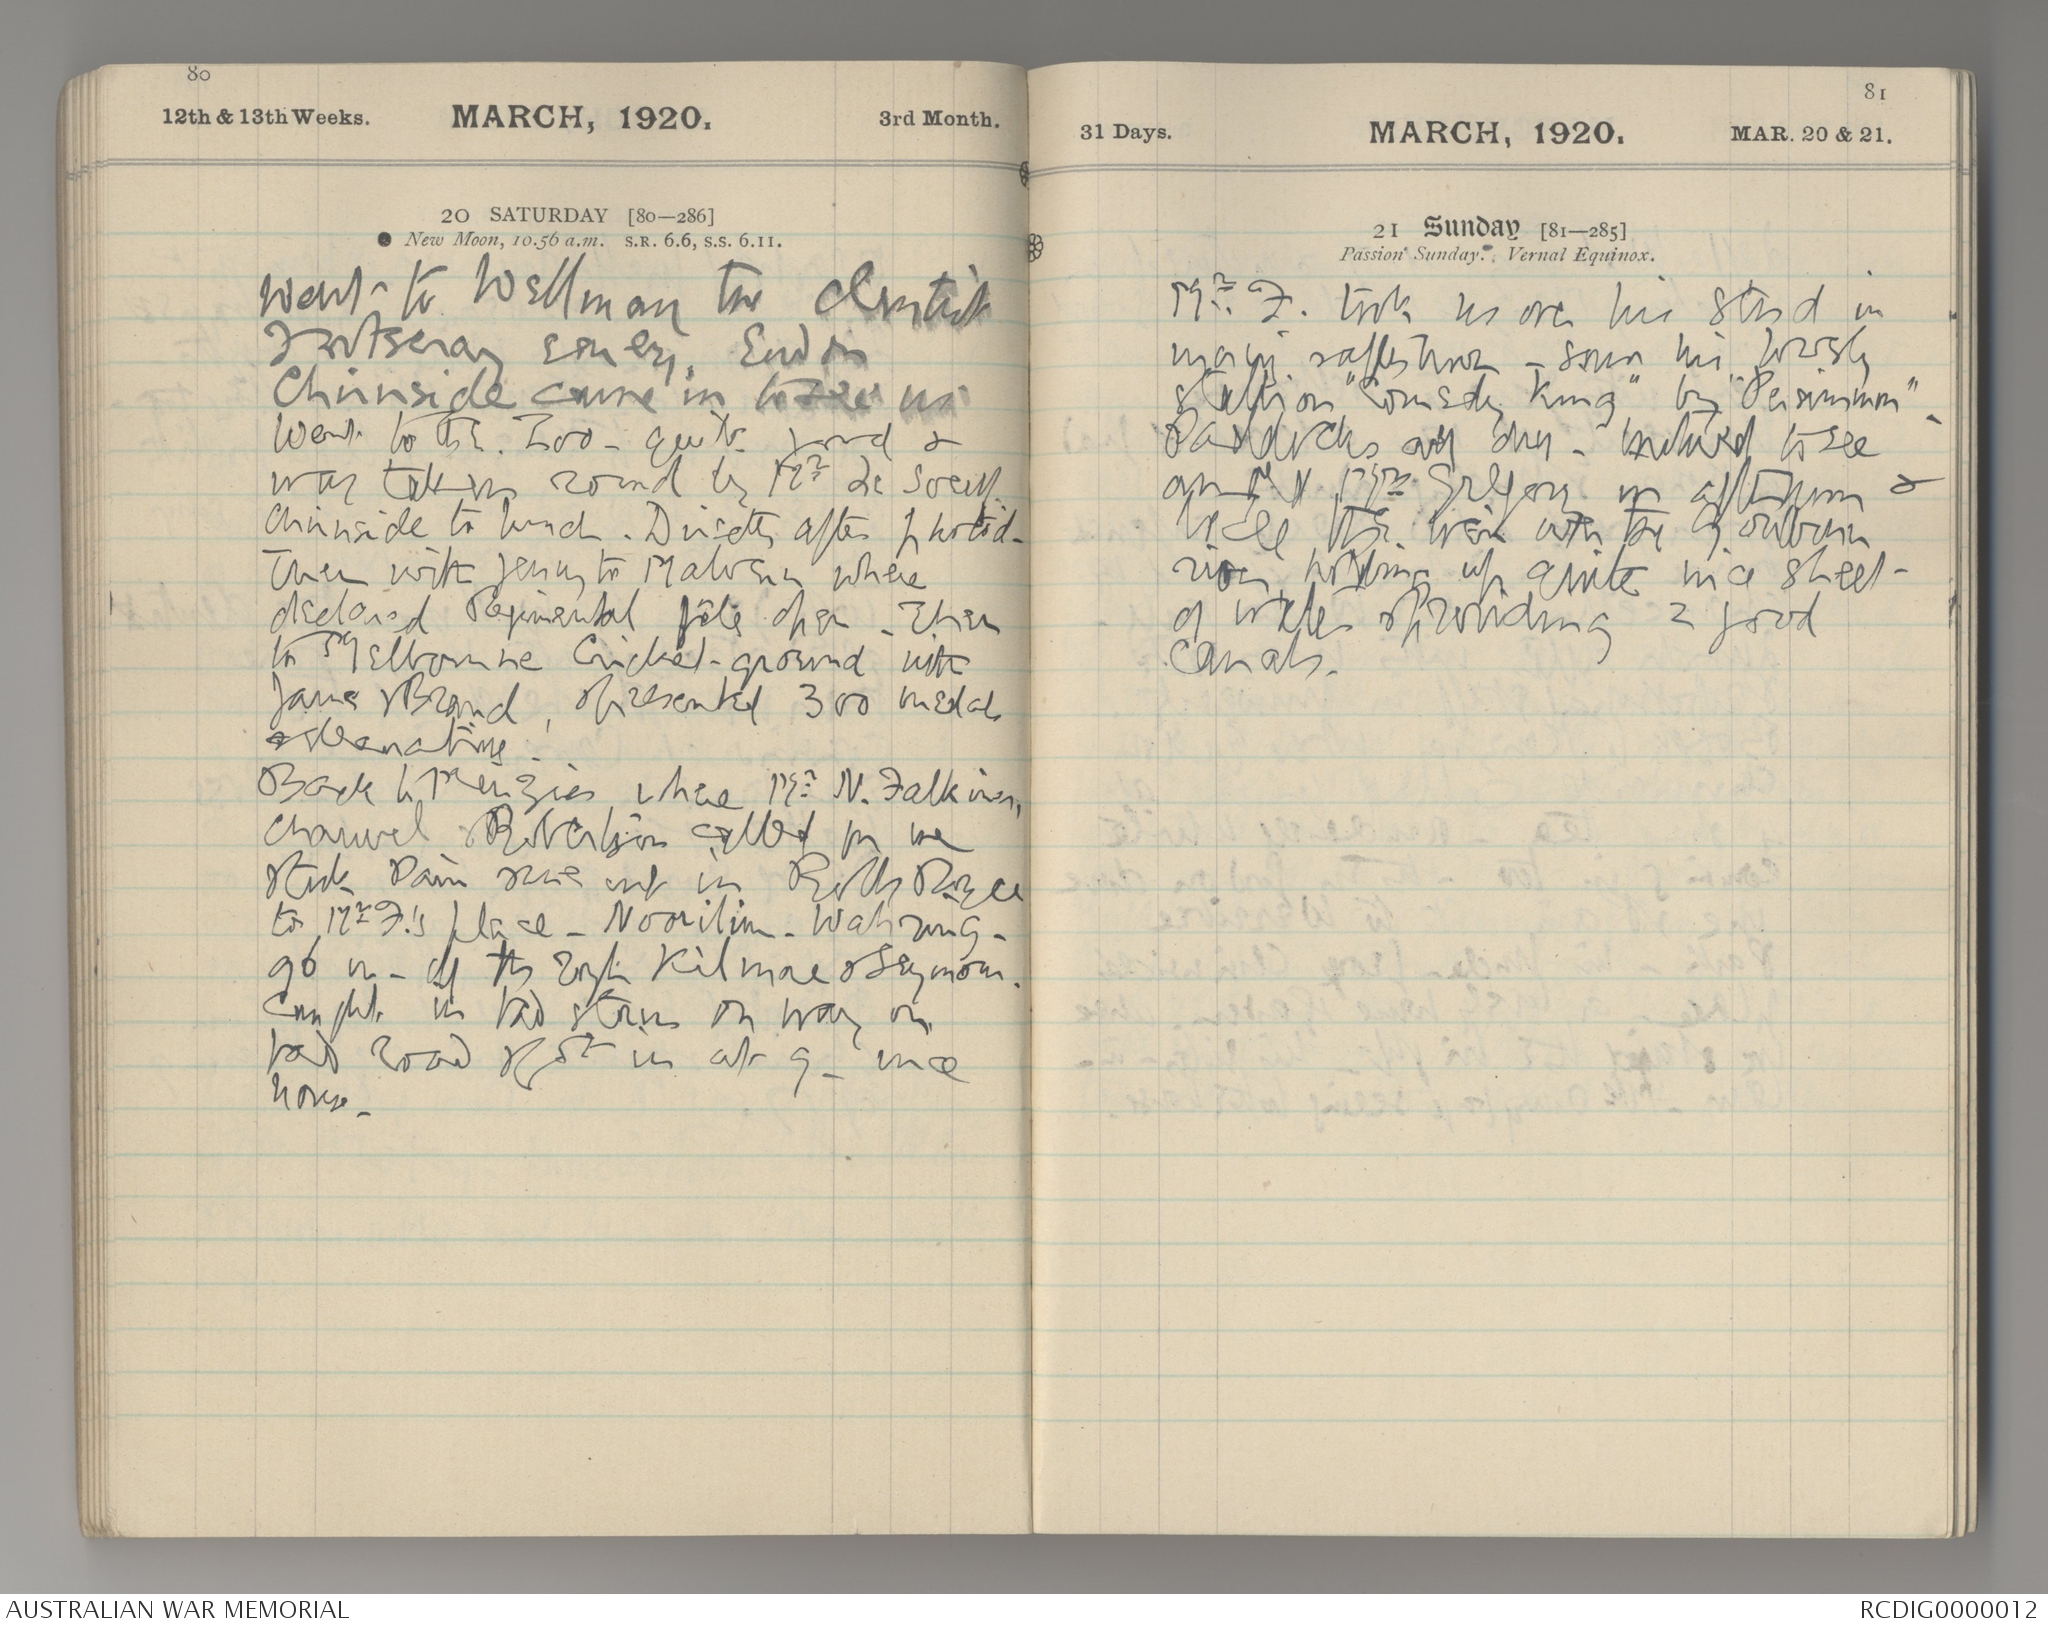 80
12th & 13th Weeks. MARCH, 1920. 3rd Month.
20 SATURDAY [80—286]
New Moon, 10.56 a.m. S.R. 6.6, S.S. 6.11.
Went to Wellman the dentist
Chirnside came in to see us
Went to the Zoo - quite good &
was taken round by Mr Le Souef.
Chirnside to lunch. Directly after
Then with Jenny to Malvern where
declared Regimental fête open - Then
to Melbourne Cricket-ground with
James & Brand, & presented 300 medals
& decorations.
Back to Menzies where Mr N. Falkiner,
Chauvel & Robertson called for me
& out in Rolls Royce
to Mr F.'s place - Noorilim - Wahring -
96 m - Kilmore & Seymour.
Caught in bad storm on way on
bad road & got in at 9 - nice
house -
81
31 Days. MARCH, 1920. MAR. 20 & 21.
21 Sunday [81—285]
Passion Sunday. Vernal Equinox.
Mr. F. took us over his stud in
& afternoon - saw his lovely
stallion "Comedy King" by "Persimmon" -
Paddocks dry - to see
Mrs Gregory in afternoon &
the weir on the Goulburn
river holding up quite nice sheet
of water & providing 2 good
canals.
AUSTRALIAN WAR MEMORIAL
RCDIG0000012